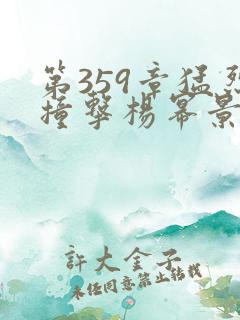 第359章猛烈
撞撃楊冪景
許大金子
未经同意禁止转载